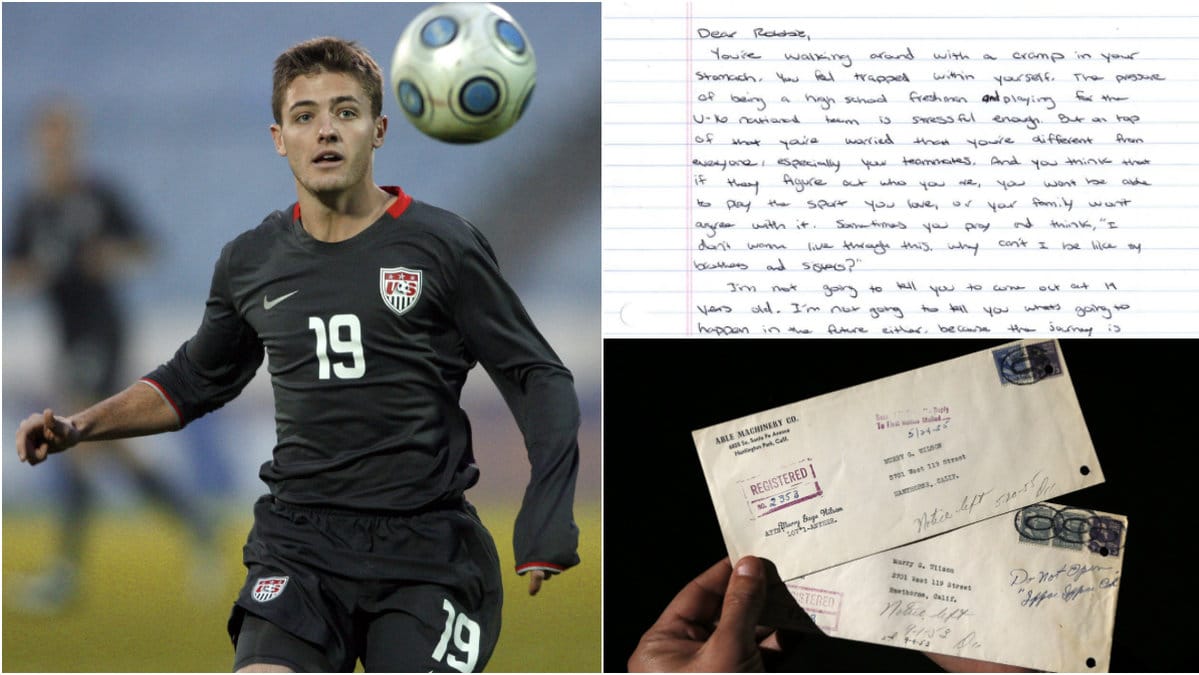 US
19
19
Dear Robbie,
You're walking around with a cramp in your
stomach. You feel trapped within yourself. The pressure
of being a high school freshman and playing for the
U-16 national team is stressful enough. But on top
of that you're worried that you're different from
everyone, especially your teammates. And you think that
if they figure out who you are, you wont be able
to play the sport you love, or your family won't
agree with it. Sometimes you pray and think, "I
don't wanna live through this, why can't I be like my
brothers and sisters?"
I'm not going to tell you to come out at 14
years old. I'm not going to tell you what's going to
happen in the future either, because the journey is
ABLE MACHINERY CO.
6828 So. Santa Fe Avenue
Huntington Park, Calif.
Reply
To First Notice Mailed
5/24-55
MURRY G. WILSON
3701 West 119 Street
HAWTHORNE, CALIF.
REGISTERED
NO. 2353
Murry Gage Wilson
Notice left
Murry G. Wilson
3701 West 119 Street
Hawthorne, Calif.
REGISTERED
Do Not Open
Notice left
9-1-53